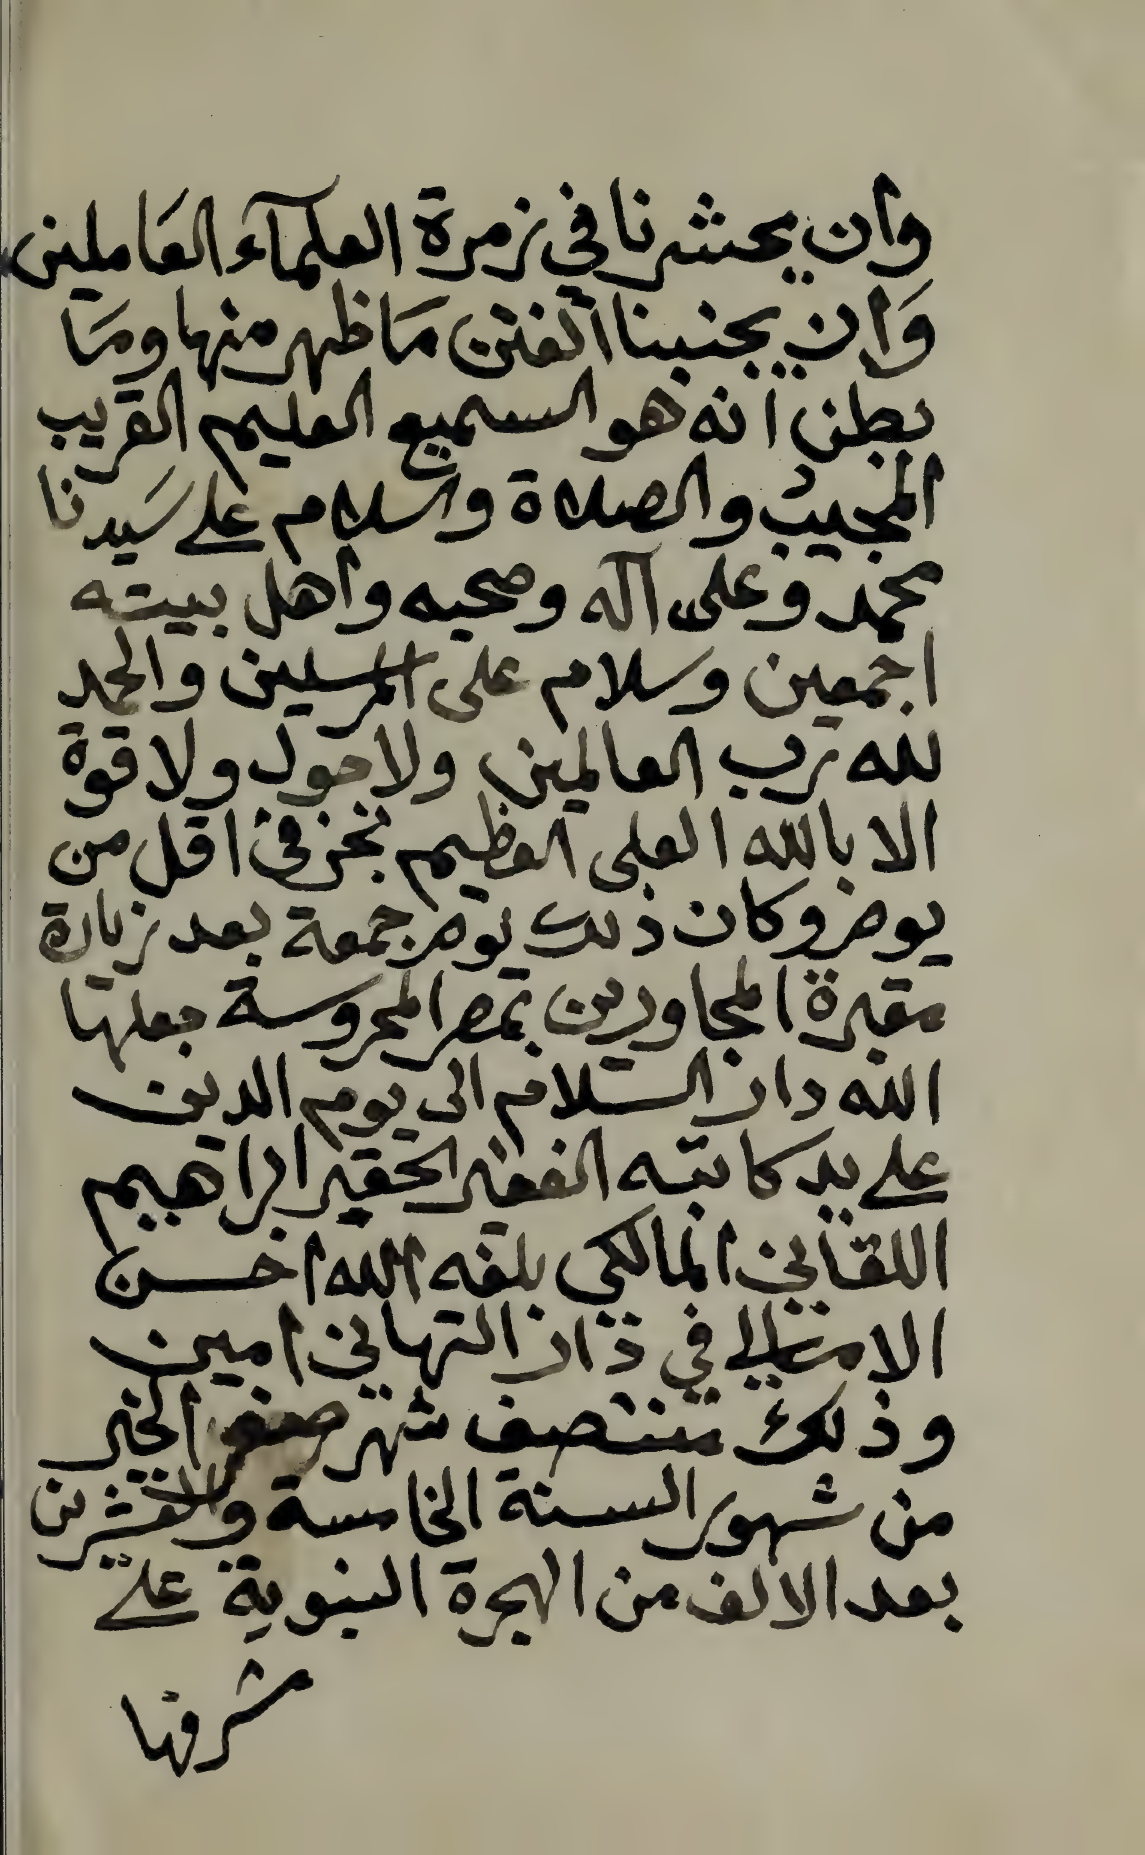 وان يحشرنا في زمرة العلمآء العاملين
وَان يجنبنا الفتن مَا ظهر منها ومَا
بطن انه هو السميع العليم القريب
المجيب والصلاة والسلام على سَيدنا
محمد وعلى آله وصحبه واهل بيته
اجمعين وسلام على المرسلين والحمد
لله رب العالمين ولا حول ولا قوة
الا بالله العلى العظيم نجز في اقل من
يوم وكان ذلك يوم جمعة بعد زيارة
مقبرة المجاورين بمصر المحروسة جعلها
الله دار السلام الى يوم الدين
على يد كاتبه الفقير الحقير ابراهيم
اللقاني المالكى بلغه الله احسن
الا في دار التهاني امين
وذلك منتصف شهر صفر الخير
من شهور السنة الخامسة والعشرين
بعد الالف من الهجرة النبوية على
مشرفها